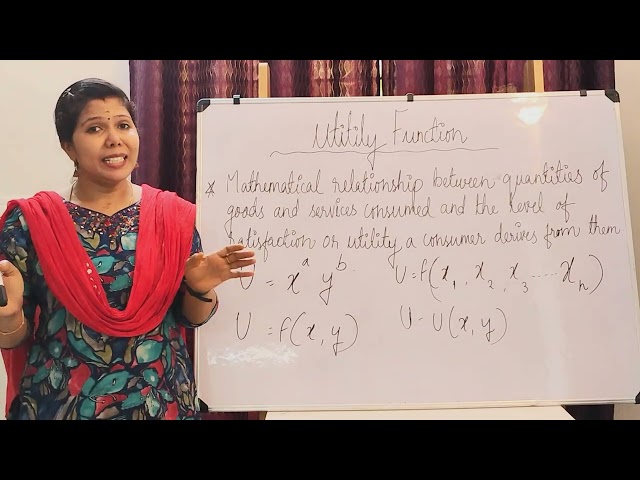 Utility Function
* Mathematical relationship between quantities of
goods and services consumed and the level of
satisfaction or utility a consumer derives from them
U = x^a y^b
U = f(x₁, x₂, x₃ ---- xₙ)
U = f(x, y)
U = U(x, y)